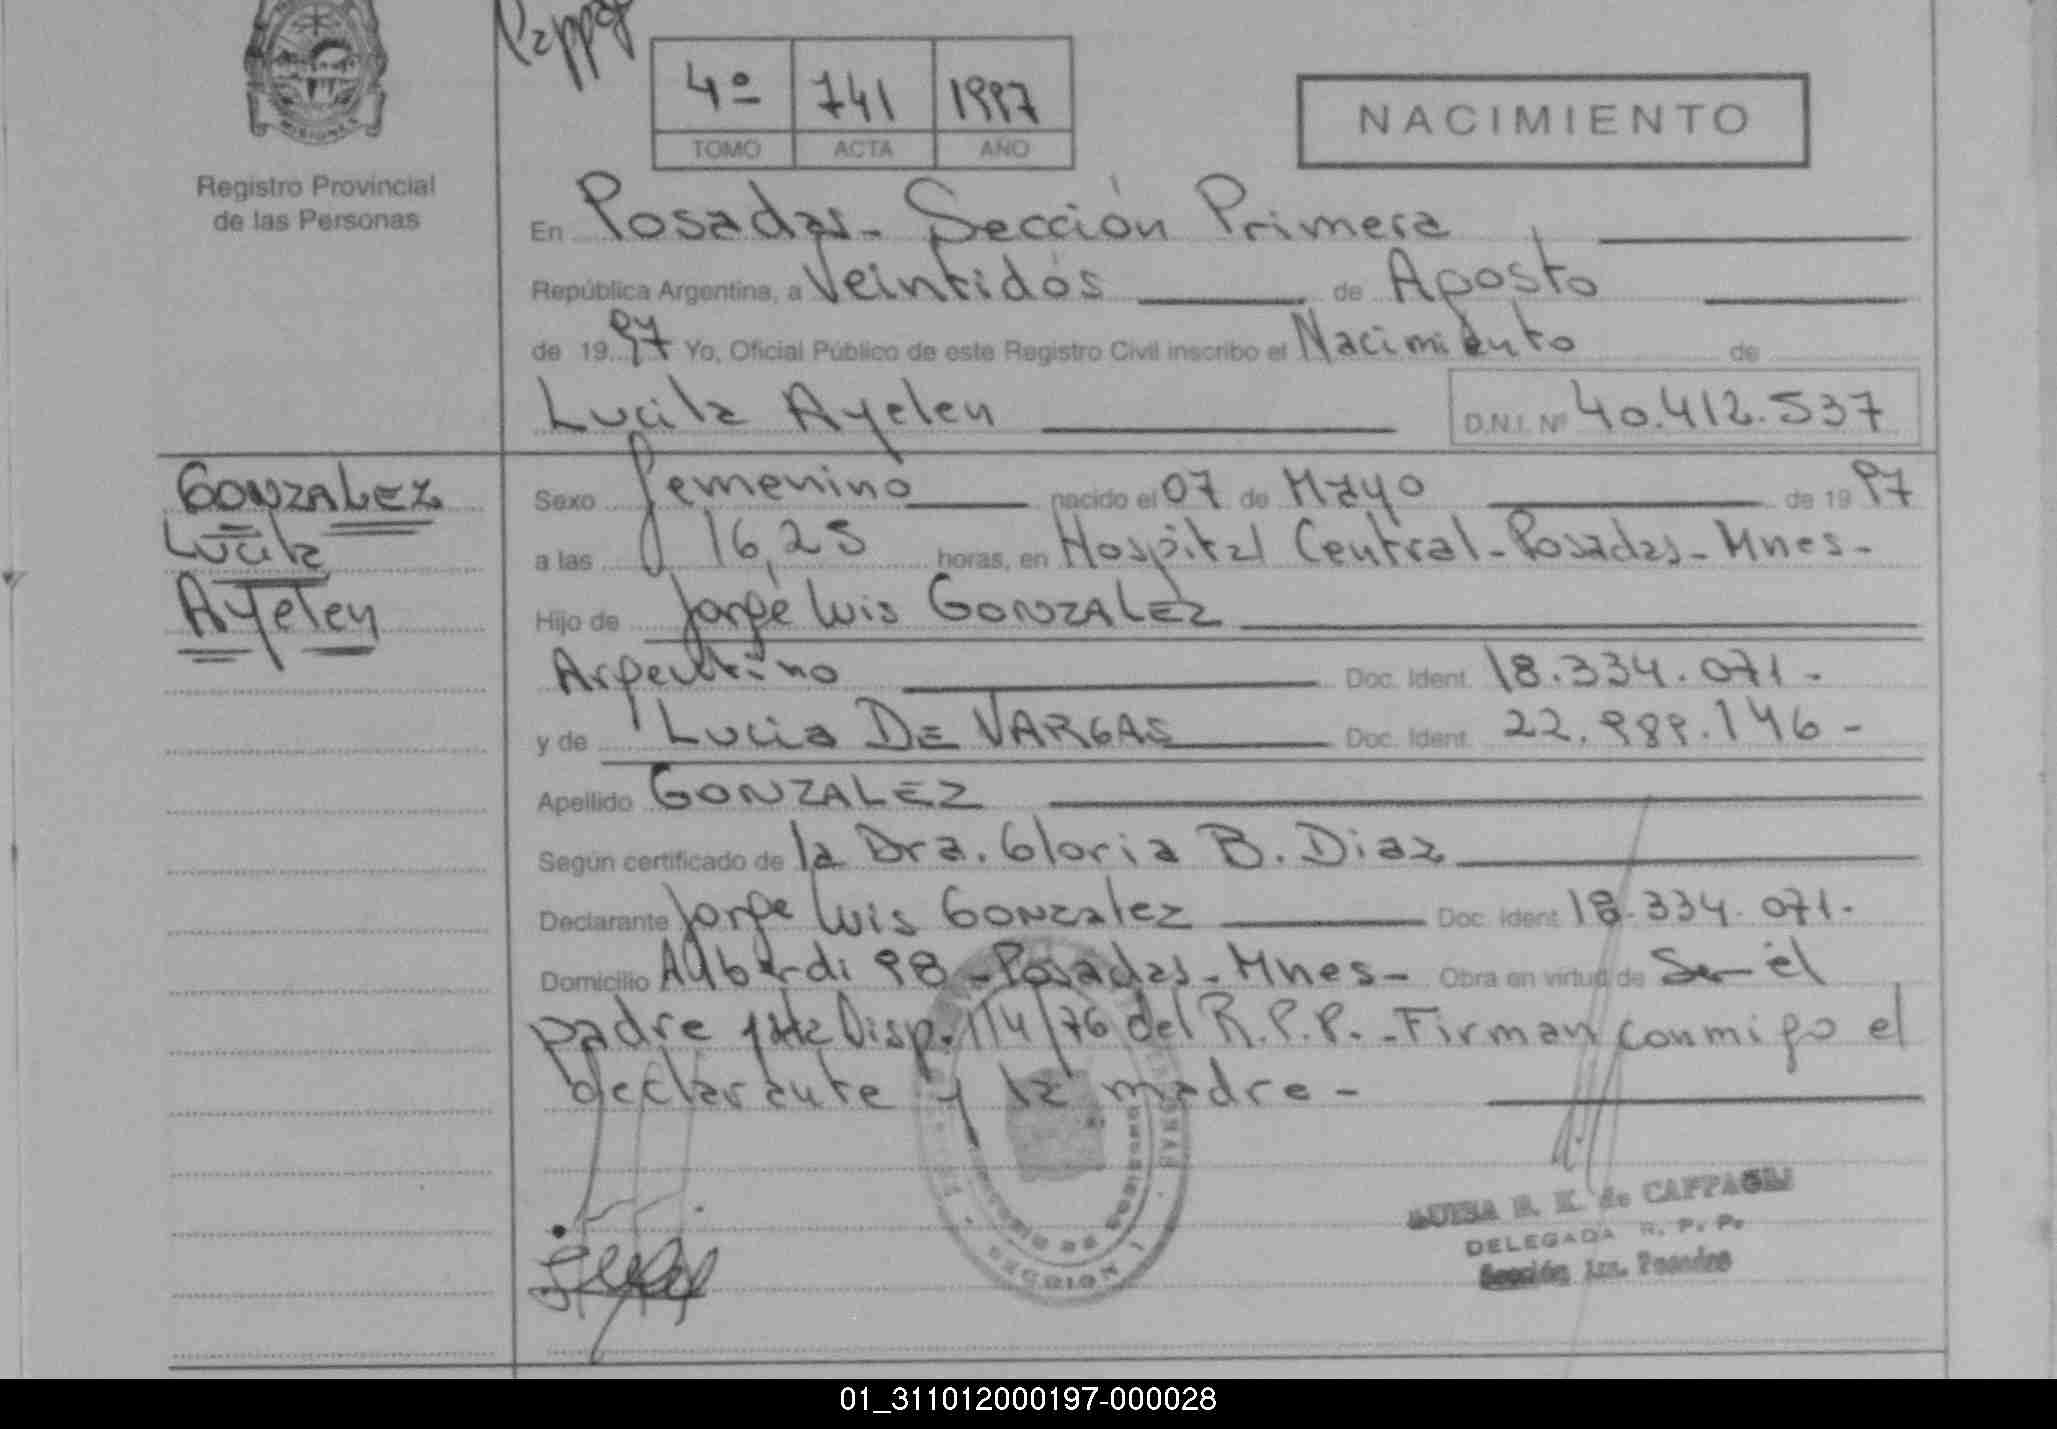 MISIONES
Registro Provincial
de las Personas
4º 741 1997
TOMO ACTA AÑO
NACIMIENTO
En Posadas - Sección Primera
República Argentina, a Veintidós de Agosto
de 1997 Yo, Oficial Público de este Registro Civil inscribo el Nacimiento de
Lucila Ayelen D.N.I. Nº 40.412.537
GONZALEZ
Lucila
Ayelen
Sexo femenino nacido el 07 de Mayo de 1997
a las 16,25 horas, en Hospital Central - Posadas - Mnes -
Hijo de Jorge Luis GONZALEZ
Argentino Doc. Ident. 18.334.071 -
y de Lucia DE VARGAS Doc. Ident. 22.989.146 -
Apellido GONZALEZ
Según certificado de la Dra. Gloria B. Diaz
Declarante Jorge Luis Gonzalez Doc. Ident. 18.334.071.
Domicilio Alberdi 98 - Posadas - Mnes - Obra en virtud de Ser él
padre Disp. 114/76 del R.P.P. - Firman conmigo el
declarante y la madre -
SECCION 1
LUISA R. K. de CAPPAGLI
DELEGADA R. P. P.
Sección 1ra. Posadas
01_311012000197-000028